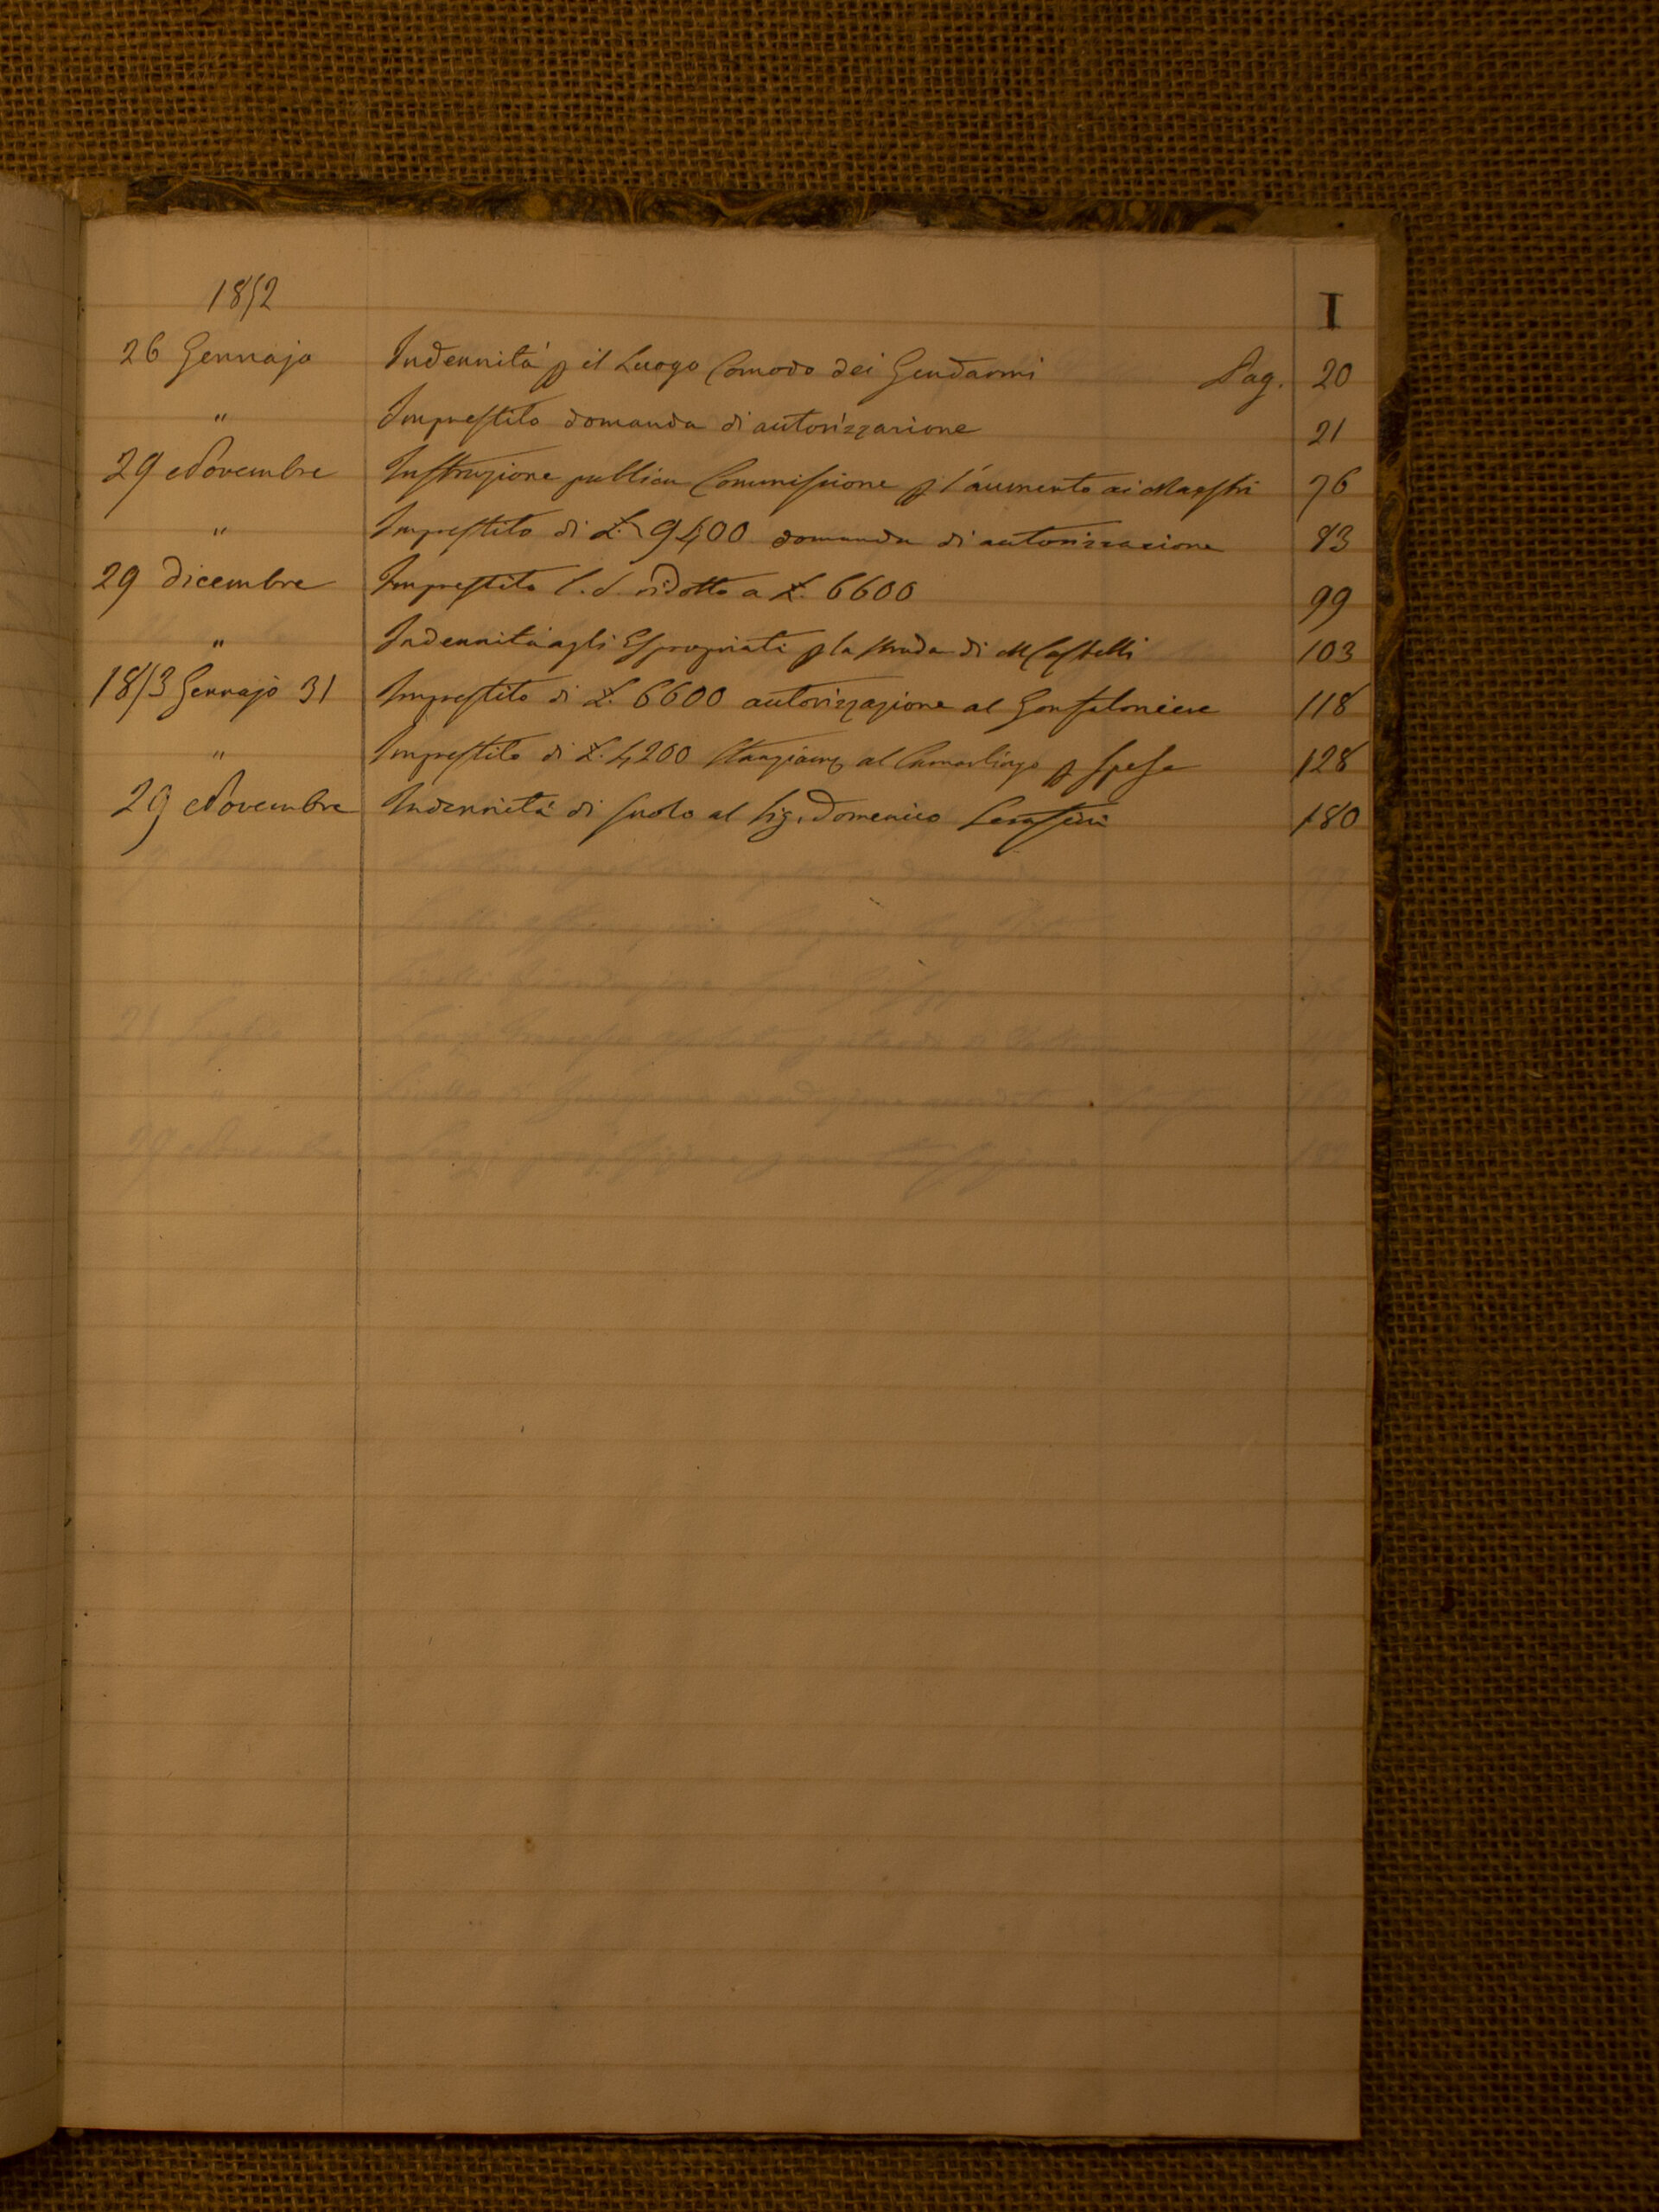 1852
I
26 Gennajo Indennità p il Luogo Comodo dei Gendarmi Pag. 20
" Imprestito domanda di autorizzazione 21
29 Novembre Instruzione publica Commissione p l'aumento ai Maestri 76
" Imprestito di L. 9400 domanda di autorizzazione 83
29 dicembre Imprestito C.S. ridotto a L. 6600 99
" Indennità agli Espropriati p la strada di M Castelli 103
1853 Gennajo 31 Imprestito di L. 6600 autorizzazione al Gonfaloniere 118
" Imprestito di L. 4200 al Camarlingo p spese 128
29 Novembre Indennità di suolo al Sig. Domenico 180